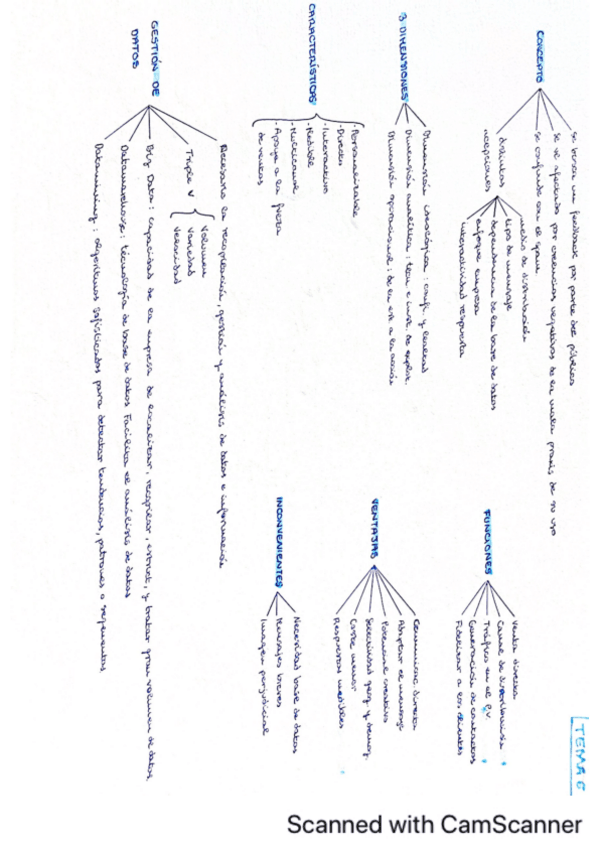 TEMA 6
CONCEPTO
se busca un feedback por parte del público
se ve afectado por creencias negativas de la mala praxis de su uso
se confunde con el spam
distintas acepciones
medio de distribución
tipo de mensaje
dependencia de la base de datos
enfoque empresa
inmediatividad respuesta
FUNCIONES
Venta directa
Canal de distribución
Tráfico en el P.V.
Generación de contactos
Fidelizar a los clientes
3 DIMENSIONES
Dimensión : conf. y lealtad
Dimensión analítica : tecn e inst. de explot.
Dimensión operacional : de la est a la acción
VENTAJAS
Comunic. directa
Adaptar el mensaje
Potencial creativo
Selectividad geog. y demog.
Coste menor
Respuestas medibles
CARACTERÍSTICAS
- Personalizable
- Directo
- Interactivo
- Medible
- Multicanal
- Apoyo a la fuerza de ventas
INCONVENIENTES
Necesidad base de datos
Mensajes breves
Imagen perjudicial
GESTIÓN DE DATOS
Necesario la recopilación, gestión y análisis de datos e información
Triple V
Volumen
Variedad
Velocidad
Big Data : capacidad de la empresa de localizar, recopilar, estruct, y tratar gran volumen de datos
Datawarehouse : tecnología de base de datos Facilita el análisis de datos
Datamining : algoritmos sofisticados para detectar tendencias, patrones o segmentos
Scanned with CamScanner